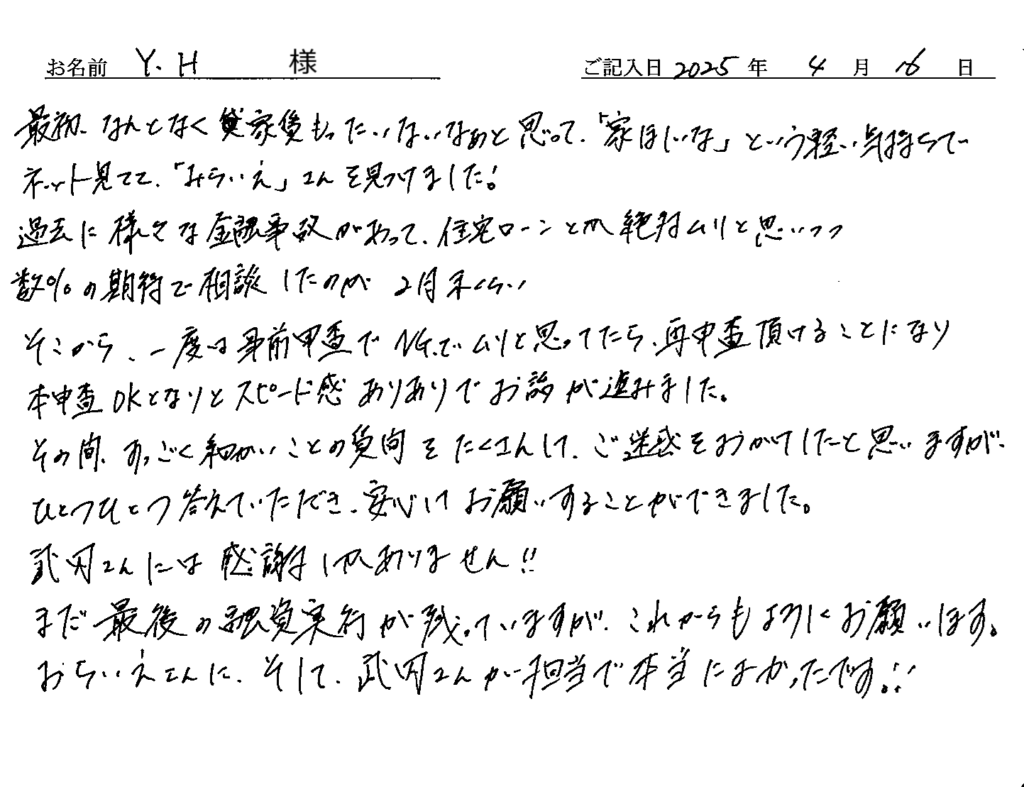 お名前 Y.H 様 ご記入日 2025年 4月 16日
最初、なんとなく貸家賃もったいないなぁと思って、「家ほしいな」という軽い気持ちで
ネット見てて、「みらいえ」さんを見つけました!
過去に様々な金融事故があって、住宅ローンとか絶対ムリと思いつつ
数%の期待で相談したのが2月末くらい
そこから、一度は事前審査でNG.でムリと思ってたら、再審査頂けることになり
本審査OKとなりとスピード感ありありでお話が進みました。
その間、すっごく細かいことの質問をたくさんして、ご迷惑をおかけしたと思いますが、
ひとつひとつ答えていただき、安心してお願いすることができました。
武内さんには感謝しかありません!!
まだ最後の融資実行が残っていますが、これからもよろしくお願いします。
みらいえさんに、そして、武内さんが担当で本当によかったです!!